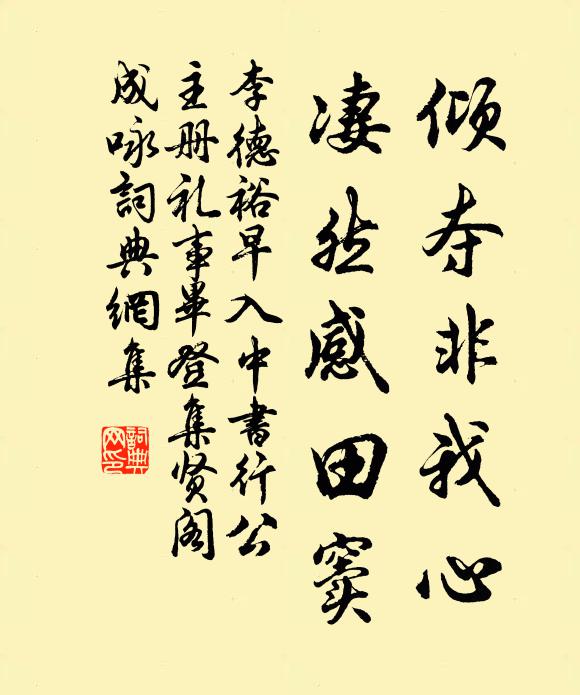 倾夺非我心
凄然感田窦
李德裕早入中書行公
主册礼事畢登集贤阁
成咏詞典網集
詞典網印